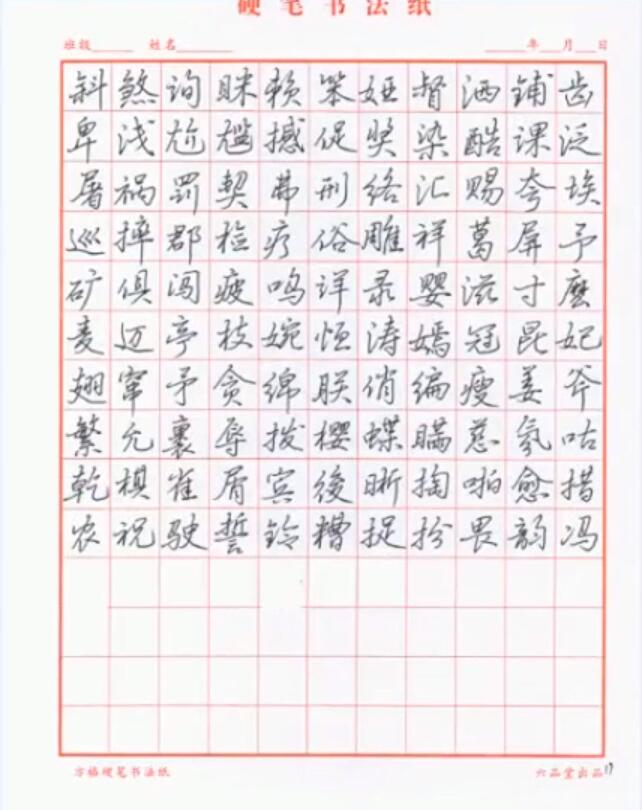 硬笔书法纸
班级 姓名 年 月 日
斜煞询眯赖笨娅督洒铺齿
卑浅尬尴撼促奖染酷课泛
屠祸罚契弗刑络汇赐夸埃
巡摔郡检疗俗雕祥葛屏予
矿俱闯疲鸣详录婴滋寸麽
麦迈亭枝婉恒涛嫣冠昆妃
翅窜矛贪绵朕俏编瘦姜斧
繁允裹辱拔樱蝶瞒慈氛咕
乾棋雀屑宾後晰掏啪愈措
农祝驶誓铃糟捉扮畏韵冯
方格硬笔书法纸 六品堂出品 17